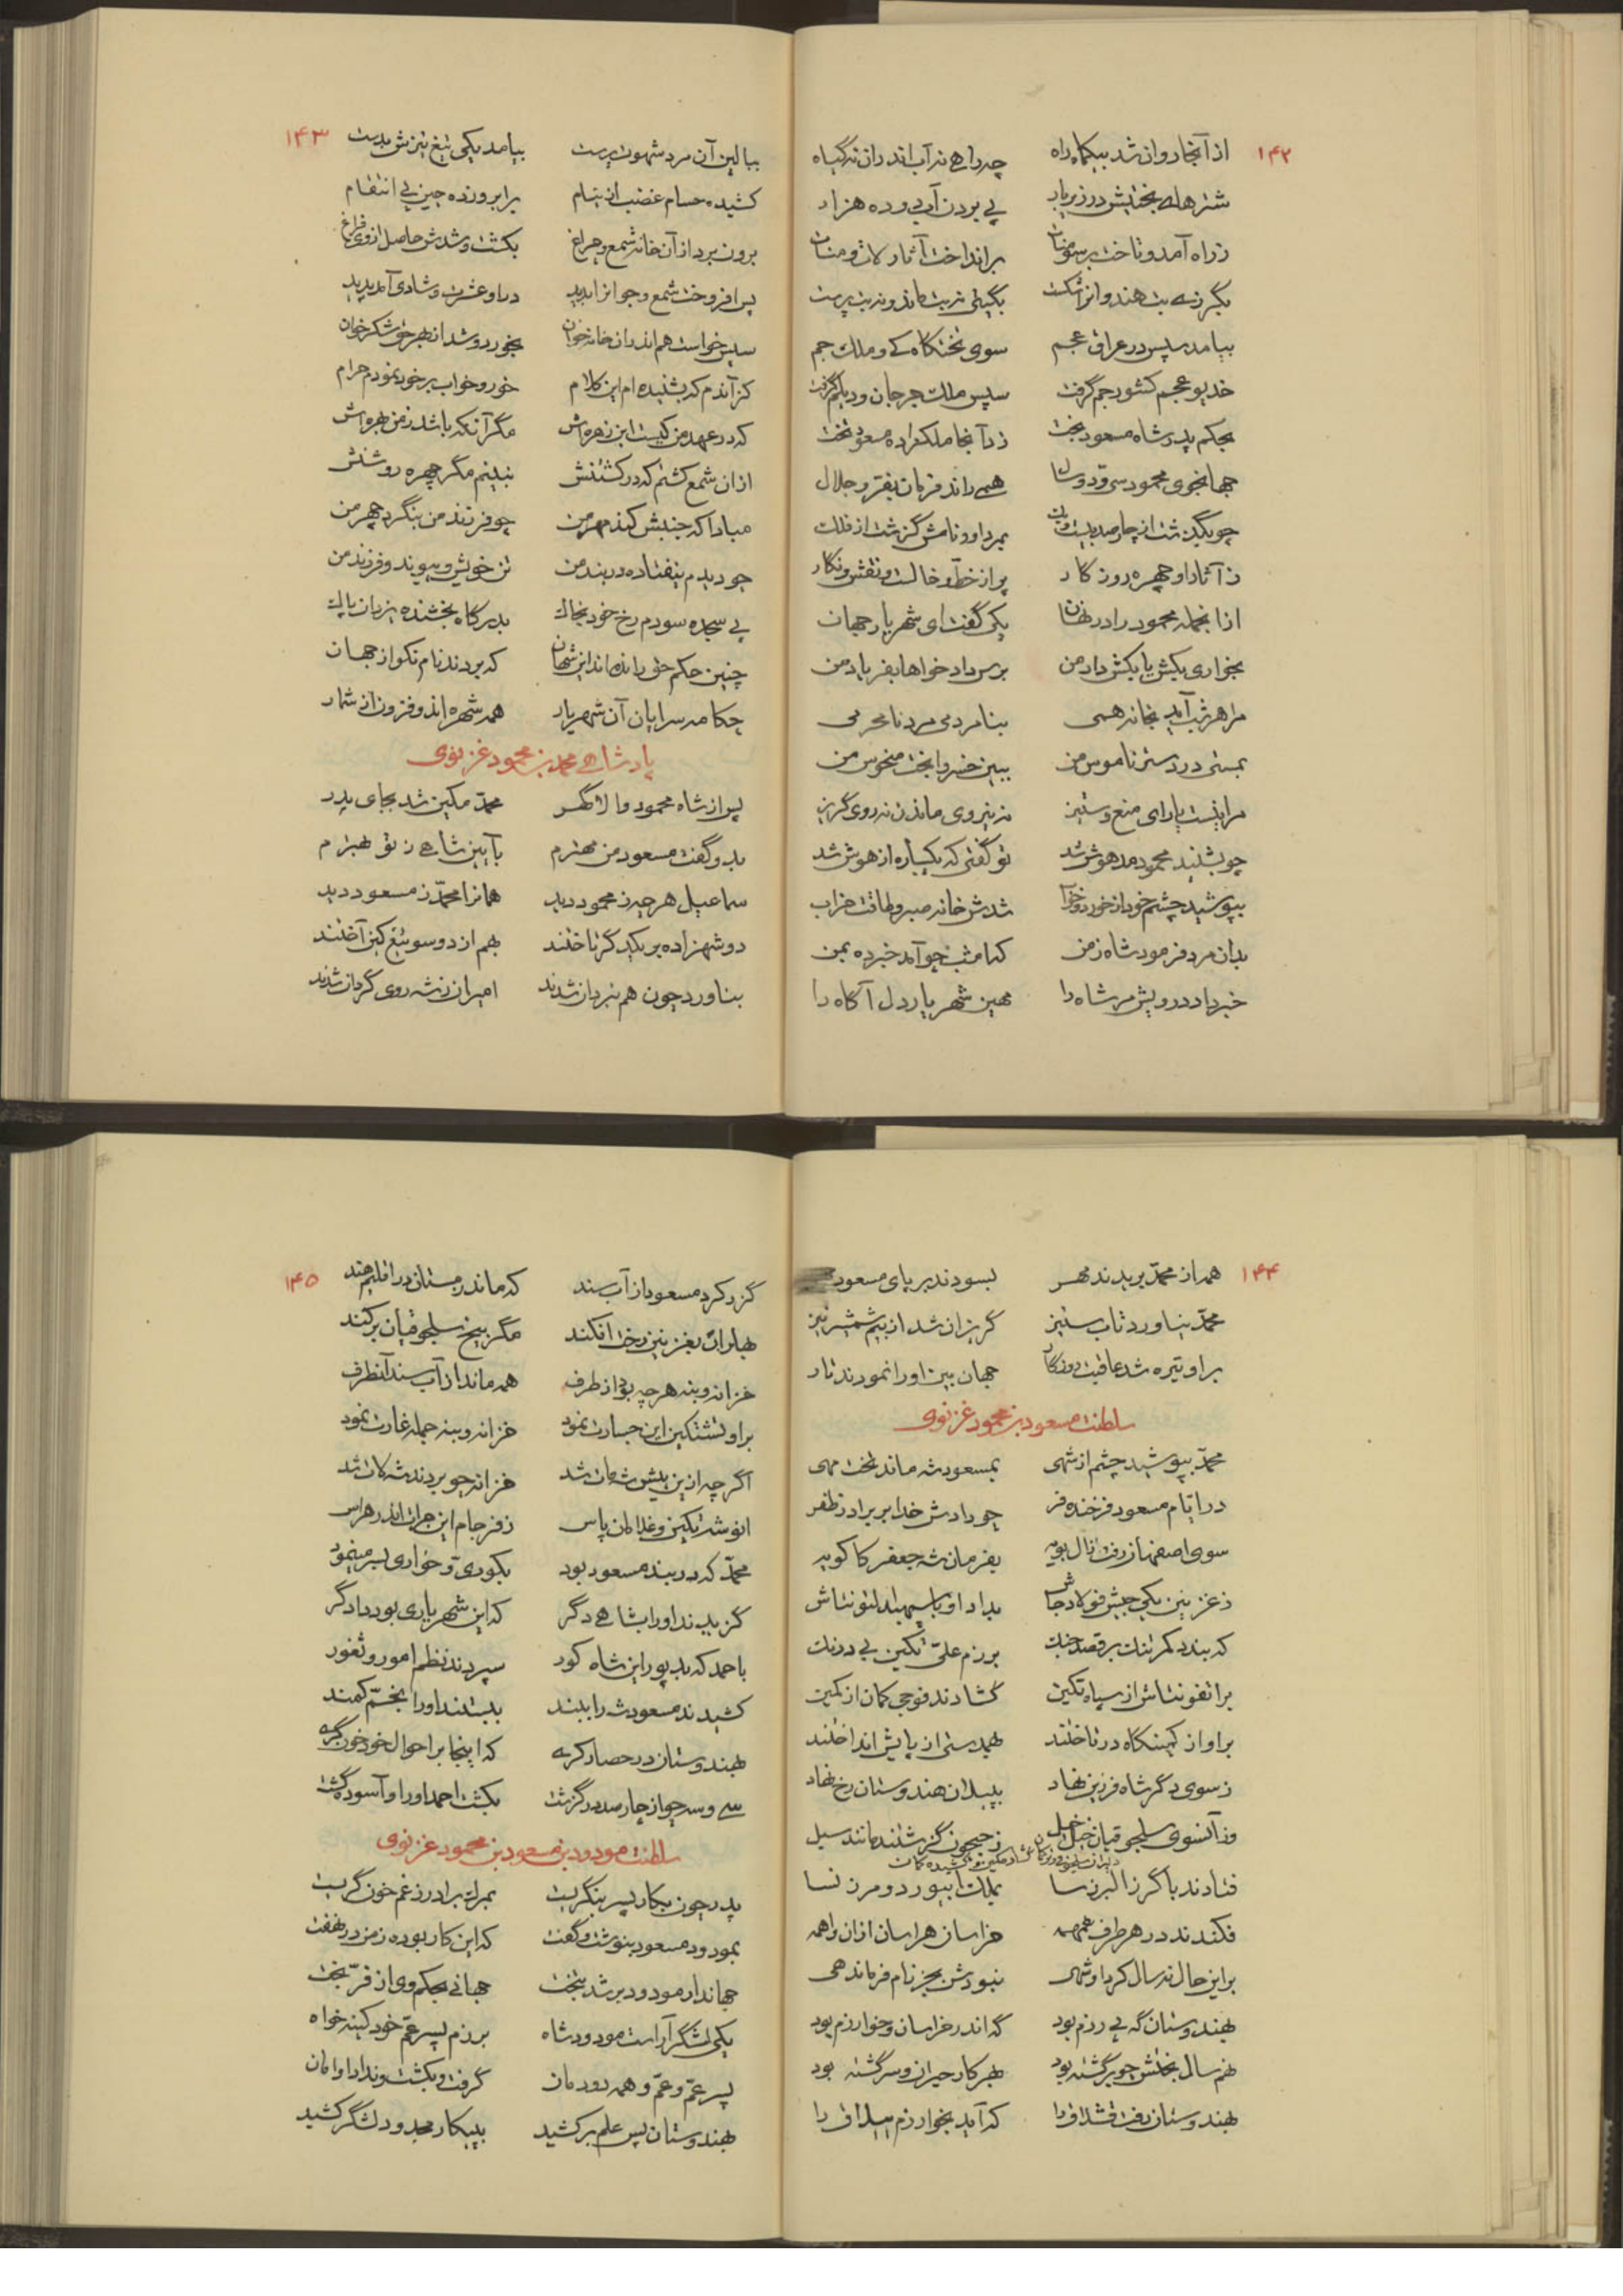 ۱۴۲
از آنجا روان شد بیکماه راه چه راهی نه آب اندران نه گیاه
شترهای بختیش در زیر بار پی بردن آب و ده هزار
ز راه آمد و تاخت بر سومنات برانداخت آثار لات و منات
بگرز بت هندوانرا شکست بگیتی نه بت ماند و نه بت پرست
بیامد سپس در عراق عجم سوی تختگاه کی و ملک جم
خدیو عجم کشور جم گرفت سپس ملک جرجان و دیلم گرفت
بحکم پدر شاه مسعود بخت زد آنجا ملکزاده مسعود تخت
جهانجوی محمود سی و دو سال همی راند فرمان بفر و جلال
چو بگذشت از چارصد بیست و یک بمرد او و نامش گزشت از فلک
ز آثار او چهره روزگار پر از خط و خالست و نقش و نگار
از آنجمله محمود را در نهان یکی گفت ای شهریار جهان
بخواری بکش یا بکش داد من برس دادخواها بفریاد من
مرا هر شب آید بخانه همی بنامردمی مرد نامحرمی
بمستی درد ستر ناموس من ببین خسروا بخت منحوس من
مرا نیست یارای منع و ستیز نه نیروی ماندن نه روی گریز
چو بشنید محمود مدهوش شد تو گفتی که یکباره از هوش شد
بپوشید چشم خود از خورد و خواب شدش خانه صبر و طاقت خراب
بدان مرد فرمود شاه زمن که امشب چو آمد خبر ده بمن
خبر داد درویش مر شاه را مهین شهریار دل آگاه را
۱۴۳
ببالین آن مرد شهوت پرست بیامد یکی تیغ تیزش بدست
کشیده حسام غضب از نیام برابرو زده چین پی انتقام
برون برد از آن خانه شمع و چراغ بکشت و شدش حاصل از وی فراغ
پس افروخت شمع و جوانرا بدید در او عشرت و شادی آمد پدید
سپس خواست هم اندران خانه خوان بخورد و شد از بهر حق شکرخوان
کز آندم که بشنیده ام این کلام خور و خواب بر خود نمودم حرام
که در عهد من کیست این زهره اش مگر آنکه باشد ز من بهره اش
از آن شمع کشتم که در کشتنش نبینم مگر چهره روشنش
مبادا که جنبش کند مهر من چو فرزند من بنگرد چهر من
چو دیدم نیفتاده در بند من تن خویش و پیوند و فرزند من
پی سجده سودم رخ خود بخاک بدرگاه بخشنده یزدان پاک
چنین حکم حق رانده اند این شهان که بردند نام نکو از جهان
چکامه سرایان آن شهریار همه شهره اند و فزون از شمار
پادشاهی محمد بن محمود غزنوی
پس از شاه محمود والا گهر محمد مکین شد بجای پدر
بدو گفت مسعود من مهترم بآیین شاهی ز تو بهترم
سماعیل هر چه ز محمود دید همانرا محمد ز مسعود دید
دو شهزاده بر یکدگر تاختند بهم از دو سو تیغ کین آختند
بناورد چون هم نبردان شدند امیران ز شه روی گردان شدند
۱۴۴
همه از محمد بریدند مهر بسودند بر پای مسعود
محمد نیاورد تاب ستیز گریزان شد از بیم شمشیر تیز
بر او تیره شد عاقبت روزگار جهان بین او را نمودند تار
سلطنت مسعود بن محمود غزنوی
محمد بپوشید چشم از شهی بمسعود شه ماند تخت مهی
در ایام مسعود فرخنده فر چو دادش خدا بر برادر ظفر
سوی اصفهان رفت زال بویه بفرمان شه جعفر کاکویه
ز غزنین یکی جیش فولاد جاش بداد او با سپهبد التونتاش
که بندد کمر تنگ بر قصد جنگ برزم علی تکین بی درنگ
بر التونتاش از سپاه تکین گشادند فوجی کمان از کمین
بر او از کمینگاه در تاختند بهمدستی از پایش انداختند
ز سوی دگر شاه فرزین نهاد بپیلان هندوستان رخ نهاد
وز آنسوی سلجوقیان خیل خیل ز جیحون گزشتند مانند سیل
فتادند با گرز البرز سا بملک ابیورد و مرز نسا
فکندند در هر طرف همهمه خراسان هراسان از آن واهمه
بر این حال نه سال کرد او شهی نبودش بجز نام فرماندهی
بهندوستان گه پی رزم بود گه اندر خراسان و خوارزم بود
نهم سال بختش چو برگشته بود بهر کار حیران و سرگشته بود
بهندوستان رفت قشلاق را که آید بخوارزم ییلاق را
۱۴۵
گزر کرد مسعود از آب سند که ماند زمستان در اقلیم هند
بهاران بغزنین رخت افکند مگر بیخ سلجوقیان برکند
خزانه و بنه هر چه بود از طرف همه ماند از آب سند آنطرف
بر او نشتکین این جسارت نمود خزانه و بنه جمله غارت نمود
اگر چه ازین پیش شه مات شد خزانه چو بردند شه لات شد
انوشتکین و غلامان پاس ز فرجام این جرات اندر هراس
محمد که در بند مسعود بود بکوری و خواری بسر مینمود
گزیدند او را بشاهی دگر که این شهریاری بود دادگر
باحمد که بد پور این شاه کور سپردند نظم امور و ثغور
کشیدند مسعود شه را ببند ببستند او را بخم کمند
بهندوستان در حصار کری که اینجا بر احوال خود خون گری
سی و سه چو از چارصد در گزشت بکشت احمد او را و آسوده گشت
سلطنت مودود بن مسعود بن محمود غزنوی
پدر چون بکار پسر بنگریست بمرگ برادر ز غم خون گریست
بمودود مسعود بنوشت و گفت که این کار بوده ز من در نهفت
جهاندار مودود بر شد بتخت جهانی بحکم وی از فر بخت
یکی لشگر آراست مودود شاه برزم پسر عم خود کینه خواه
پسر عم و عم و همه دودمان گرفت و بکشت و نداد او امان
بهندوستان پس علم برکشید به پیکار مجدود لشگر کشید